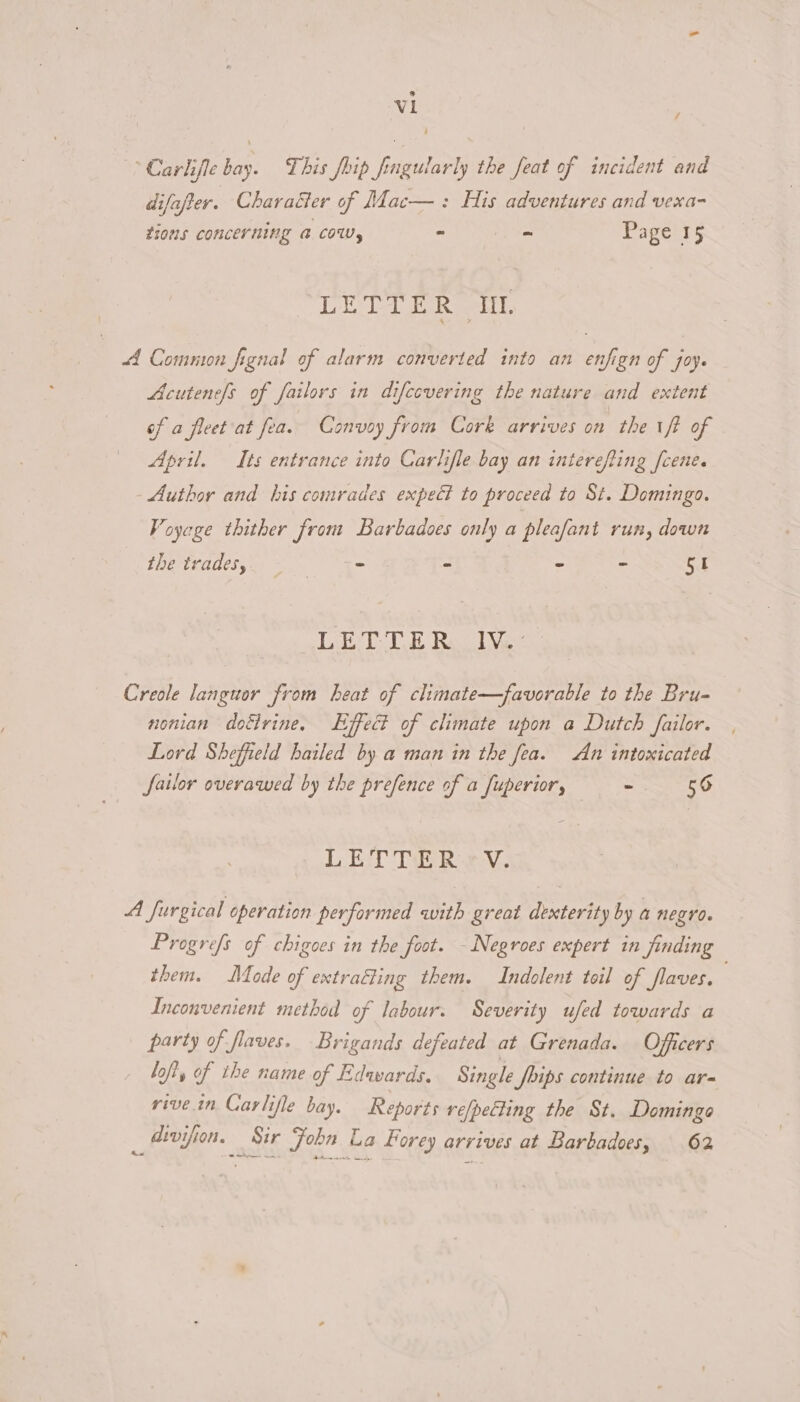 vi
Carliſle bay. This ſhip ſingularly the ſeat of incident and
diſaſter. Character of Mac— : His adventures and vexa-
tions concerning a cow, - - Page 15
LETTER III.
A Common ſignal of alarm converted into an enſign of joy.
Acuteneſs of ſailors in diſcovering the nature and extent
of a fleet at ſea. Convoy from Cork arrives on the 1ſt of
April. Its entrance into Carliſle bay an intereſting ſcene.
Author and his comrades expect to proceed to St. Domingo.
Voyage thither from Barbadoes only a pleaſant run, down
the trades, - - - - 51
LETTER IV.
Creole languor from heat of climate—favorable to the Bru-
nonian doctrine. Effect of climate upon a Dutch ſailor.
Lord Sheffield hailed by a man in the ſea. An intoxicated
ſailor overawed by the preſence of a ſuperior, - 56
LETTER V.
A ſurgical operation performed with great dexterity by a negro.
Progreſs of chigoes in the foot. Negroes expert in finding
them. Mode of extracting them. Indolent toil of ſlaves.
Inconvenient method of labour. Severity uſed towards a
party of ſlaves. Brigands defeated at Grenada. Officers
loſt, of the name of Edwards. Single ſhips continue to ar-
rive in Carliſle bay. Reports reſpecting the St. Domingo
diviſion. Sir John La Forey arrives at Barbadoes, 62